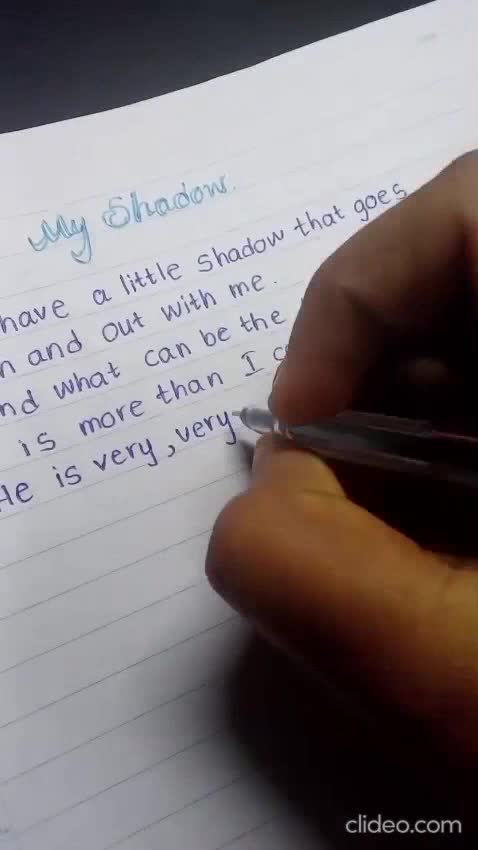 My Shadow.
have a little shadow that goes
and out with me.
what can be the
is more than I
He is very, very
clideo.com